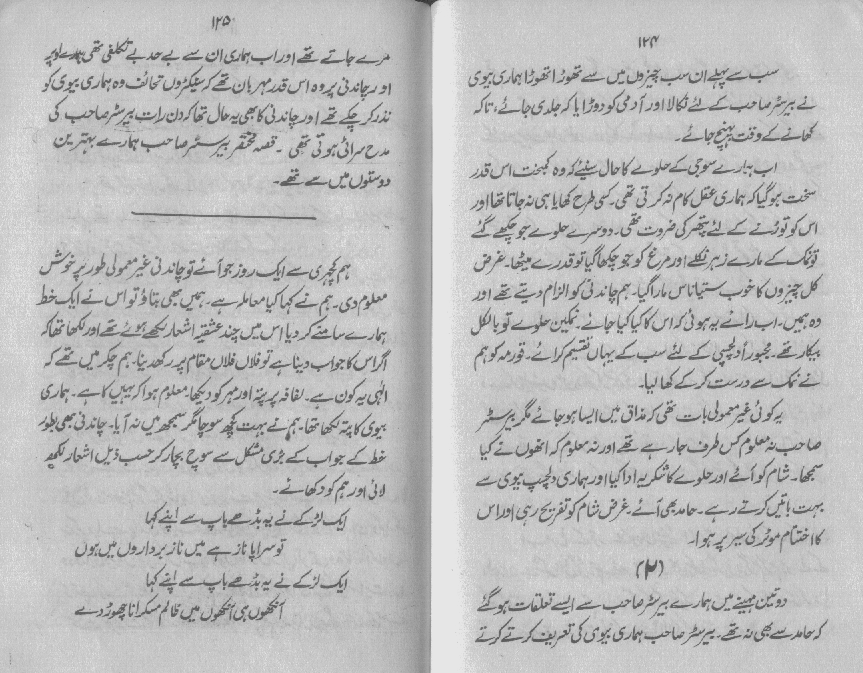 ۱۲۴
سب سے پہلے ان سب چیزوں میں سے تھوڑا تھوڑا ہماری بیوی
نے بیرسٹر صاحب کے لئے نکالا اور آدمی کو دوڑایا کہ جلدی جائے، تاکہ
کھانے کے وقت پہنچ جائے۔
اب ہمارے سوجی کے حلوے کا حال سنیئے کہ وہ کمبخت اس قدر
سخت ہو گیا کہ ہماری عقل کام نہ کرتی تھی۔ کسی طرح کھایا ہی نہ جاتا تھا اور
اس کو توڑنے کے لئے پتھر کی ضروت تھی۔ دوسرے حلوے جو چکھے گئے
تو نمک کے مارے زہر نکلے اور مرغ کو جو چکھا گیا تو قدرے میٹھا۔ غرض
کل چیزوں کا خوب ستیاناس مارا گیا۔ ہم چاندنی کو الزام دیتے تھے اور
وہ ہمیں۔ اب رائے یہ ہوئی کہ اس کا کیا کیا جائے۔ نمکین حلوے تو بالکل
بیکار تھے۔ مجبوراً دلچسپی کے لئے سب کے یہاں تقسیم کرائے۔ قورمہ کو ہم
نے نمک سے درست کر کے کھا لیا۔
یہ کوئی غیر معمولی بات تھی کہ مذاق میں ایسا ہو جائے مگر بیرسٹر
صاحب نہ معلوم کس طرف جا رہے تھے اور نہ معلوم کہ انھوں نے کیا
سمجھا۔ شام کو آئے اور حلوے کا شکریہ ادا کیا اور ہماری دلچسپ بیوی سے
بہت باتیں کرتے رہے۔ حامد بھی آئے۔ غرض شام کو تفریح رہی اور اس
کا اختتام موٹر کی سیر پر ہوا۔
(۲)
دو تین مہینے میں ہمارے بیرسٹر صاحب سے ایسے تعلقات ہو گئے
کہ حامد سے بھی نہ تھے۔ بیرسٹر صاحب ہماری بیوی کی تعریف کرتے کرتے
۱۲۵
مرے جاتے تھے اور اب ہماری ان سے بے حد بے تکلفی تھی ہمارے اوپر
اور چاندنی پر وہ اس قدر مہربان تھے کہ سینکڑوں تحائف وہ ہماری بیوی کو
نذر کر چکے تھے اور چاندنی کا بھی یہ حال تھا کہ دن رات بیرسٹر صاحب کی
مدح سرائی ہوتی تھی۔ قصہ مختصر بیرسٹر صاحب ہمارے بہترین
دوستوں میں سے تھے۔
ہم کچہری سے ایک روز جو آئے تو چاندنی غیر معمولی طور پر خوش
معلوم دی۔ ہم نے کہا کیا معاملہ ہے۔ ہمیں بھی بتاؤ تو اس نے ایک خط
ہمارے سامنے کر دیا اس میں چند عشقیہ اشعار لکھے ہوئے تھے اور لکھا تھا کہ
اگر اس کا جواب دینا ہے تو فلاں فلاں مقام پر رکھ دینا۔ ہم چکر میں تھے کہ
الٰہی یہ کون ہے۔ لفافہ پر پتہ اور مہر کو دیکھا۔ معلوم ہوا کہ یہیں کا ہے۔ ہماری
بیوی کا پتہ لکھا تھا۔ ہم نے بہت کچھ سوچا مگر سمجھ میں نہ آیا۔ چاندنی بھی بطور
خط کے جواب کے بڑی مشکل سے سوچ بچار کر حسب ذیل اشعار لکھ
لائی اور ہم کو دکھائے۔
ایک لڑکے نے یہ بڈھے باپ سے اپنے کہا
تو سراپا ناز ہے میں ناز برداروں میں ہوں
ایک لڑکے نے یہ بڈھے باپ سے اپنے کہا
آنکھوں ہی آنکھوں میں ظالم مسکرانا چھوڑ دے